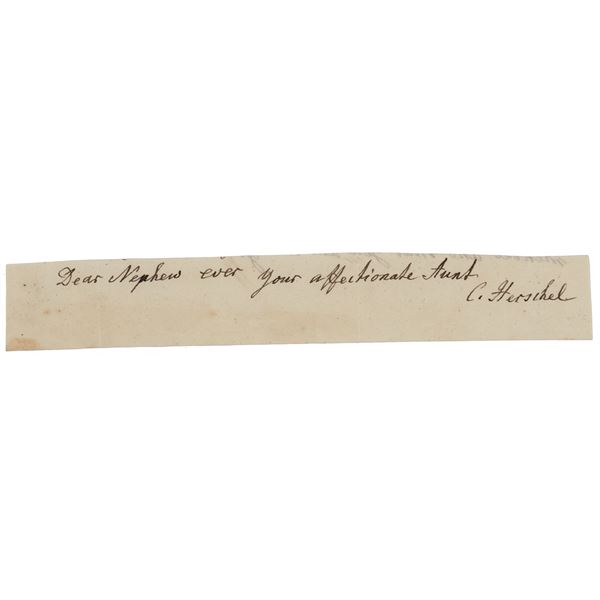 Dear Nephew ever your affectionate Aunt
C. Herschel